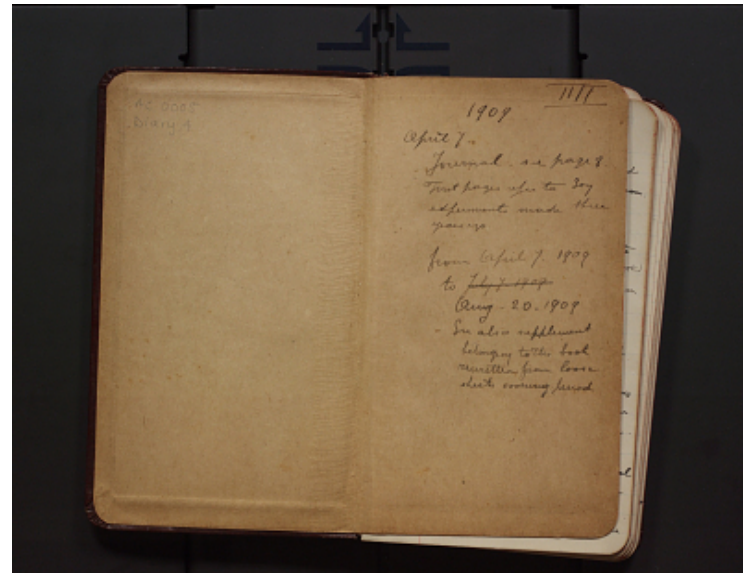 AC 0005
Diary 1
IIII
1909
April 7.
Journal. see page 8.
First pages refer to Soy
experiments made three
years ago.
from April 7. 1909
to July 7. 1909
Aug. 20. 1909
- See also supplement
belonging to this book
rewritten from loose
sheets covering period